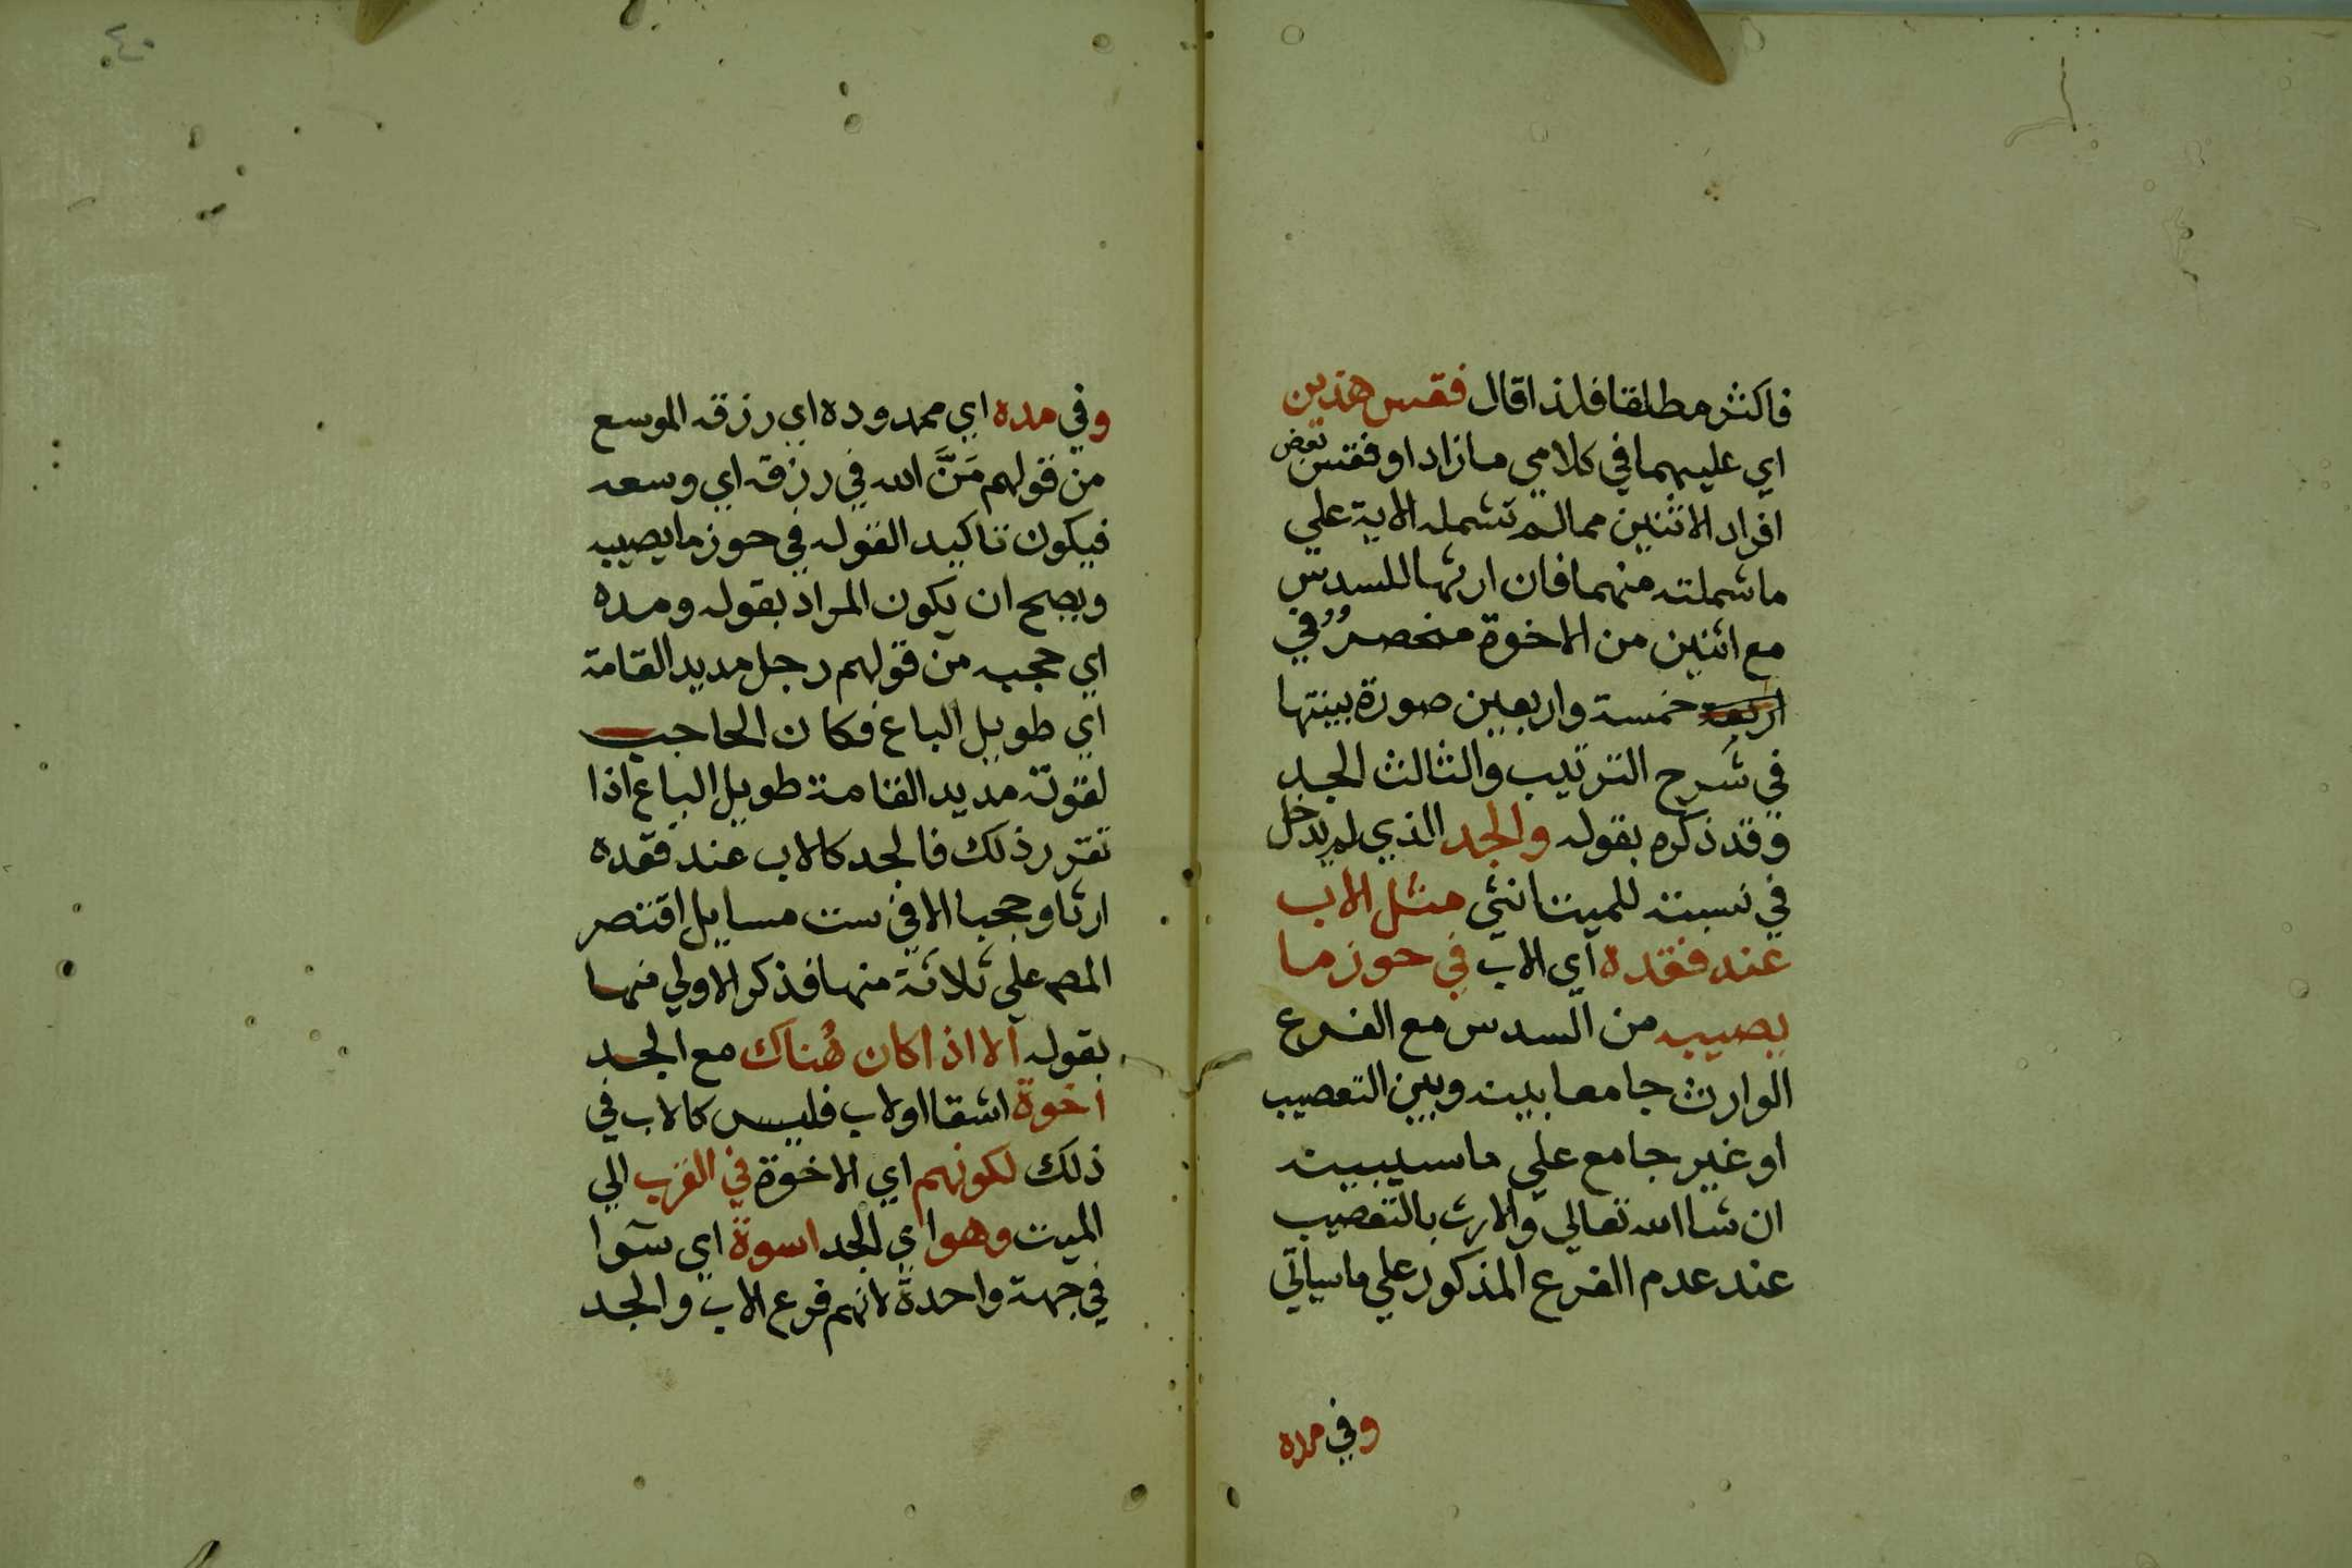 فاكثر مطلقا فلذا قال فقس هذين
اي عليهما في كلامي ما زاد او فقس بعض
افراد الاثنين ممالم تشمله الاية علي
ما شملته منهما فان ارثها للسدس
مع اثنين من الاخوة منحصر في
اربعة خمسة واربعين صورة بينتها
في شرح الترتيب والثالث الجد
وقد ذكره بقوله والجد الذي لم يدخل
في نسبته للميت انثي مثل الاب
عند فقده اي الاب في حوز ما
يصيبه من السدس مع الفرع
الوارث جامعا بينه وبين التعصيب
او غير جامع علي ما سيبينه
ان شا الله تعالي والارث بالتعصيب
عند عدم الفرع المذكور علي ما سياتي
وفي مده
٤٠
وفي مده اي ممدوده اي رزقه الموسع
من قولهم مَنَّ الله في رزقه اي وسعه
فيكون تاكيد القوله في حوز ما يصيبه
ويصح ان يكون المراد بقوله ومده
اي حجبه من قولهم رجل مديد القامة
اي طويل الباع فكان الحاجب
لقوته مديد القامة طويل الباع اذا
تقرر ذلك فالجد كالاب عند فقده
ارثا وحجبا الا في ست مسايل اقتصر
المص علي ثلاثة منها فذكر الاولي منها
بقوله الا اذا كان هُناك مع الجد
اخوة اشقا او لاب فليس كالاب في
ذلك لكونهم اي الاخوة في القرب الي
الميت وهو اي الجد اسوة اي سوا
في جهة واحدة لانهم فرع الاب والجد